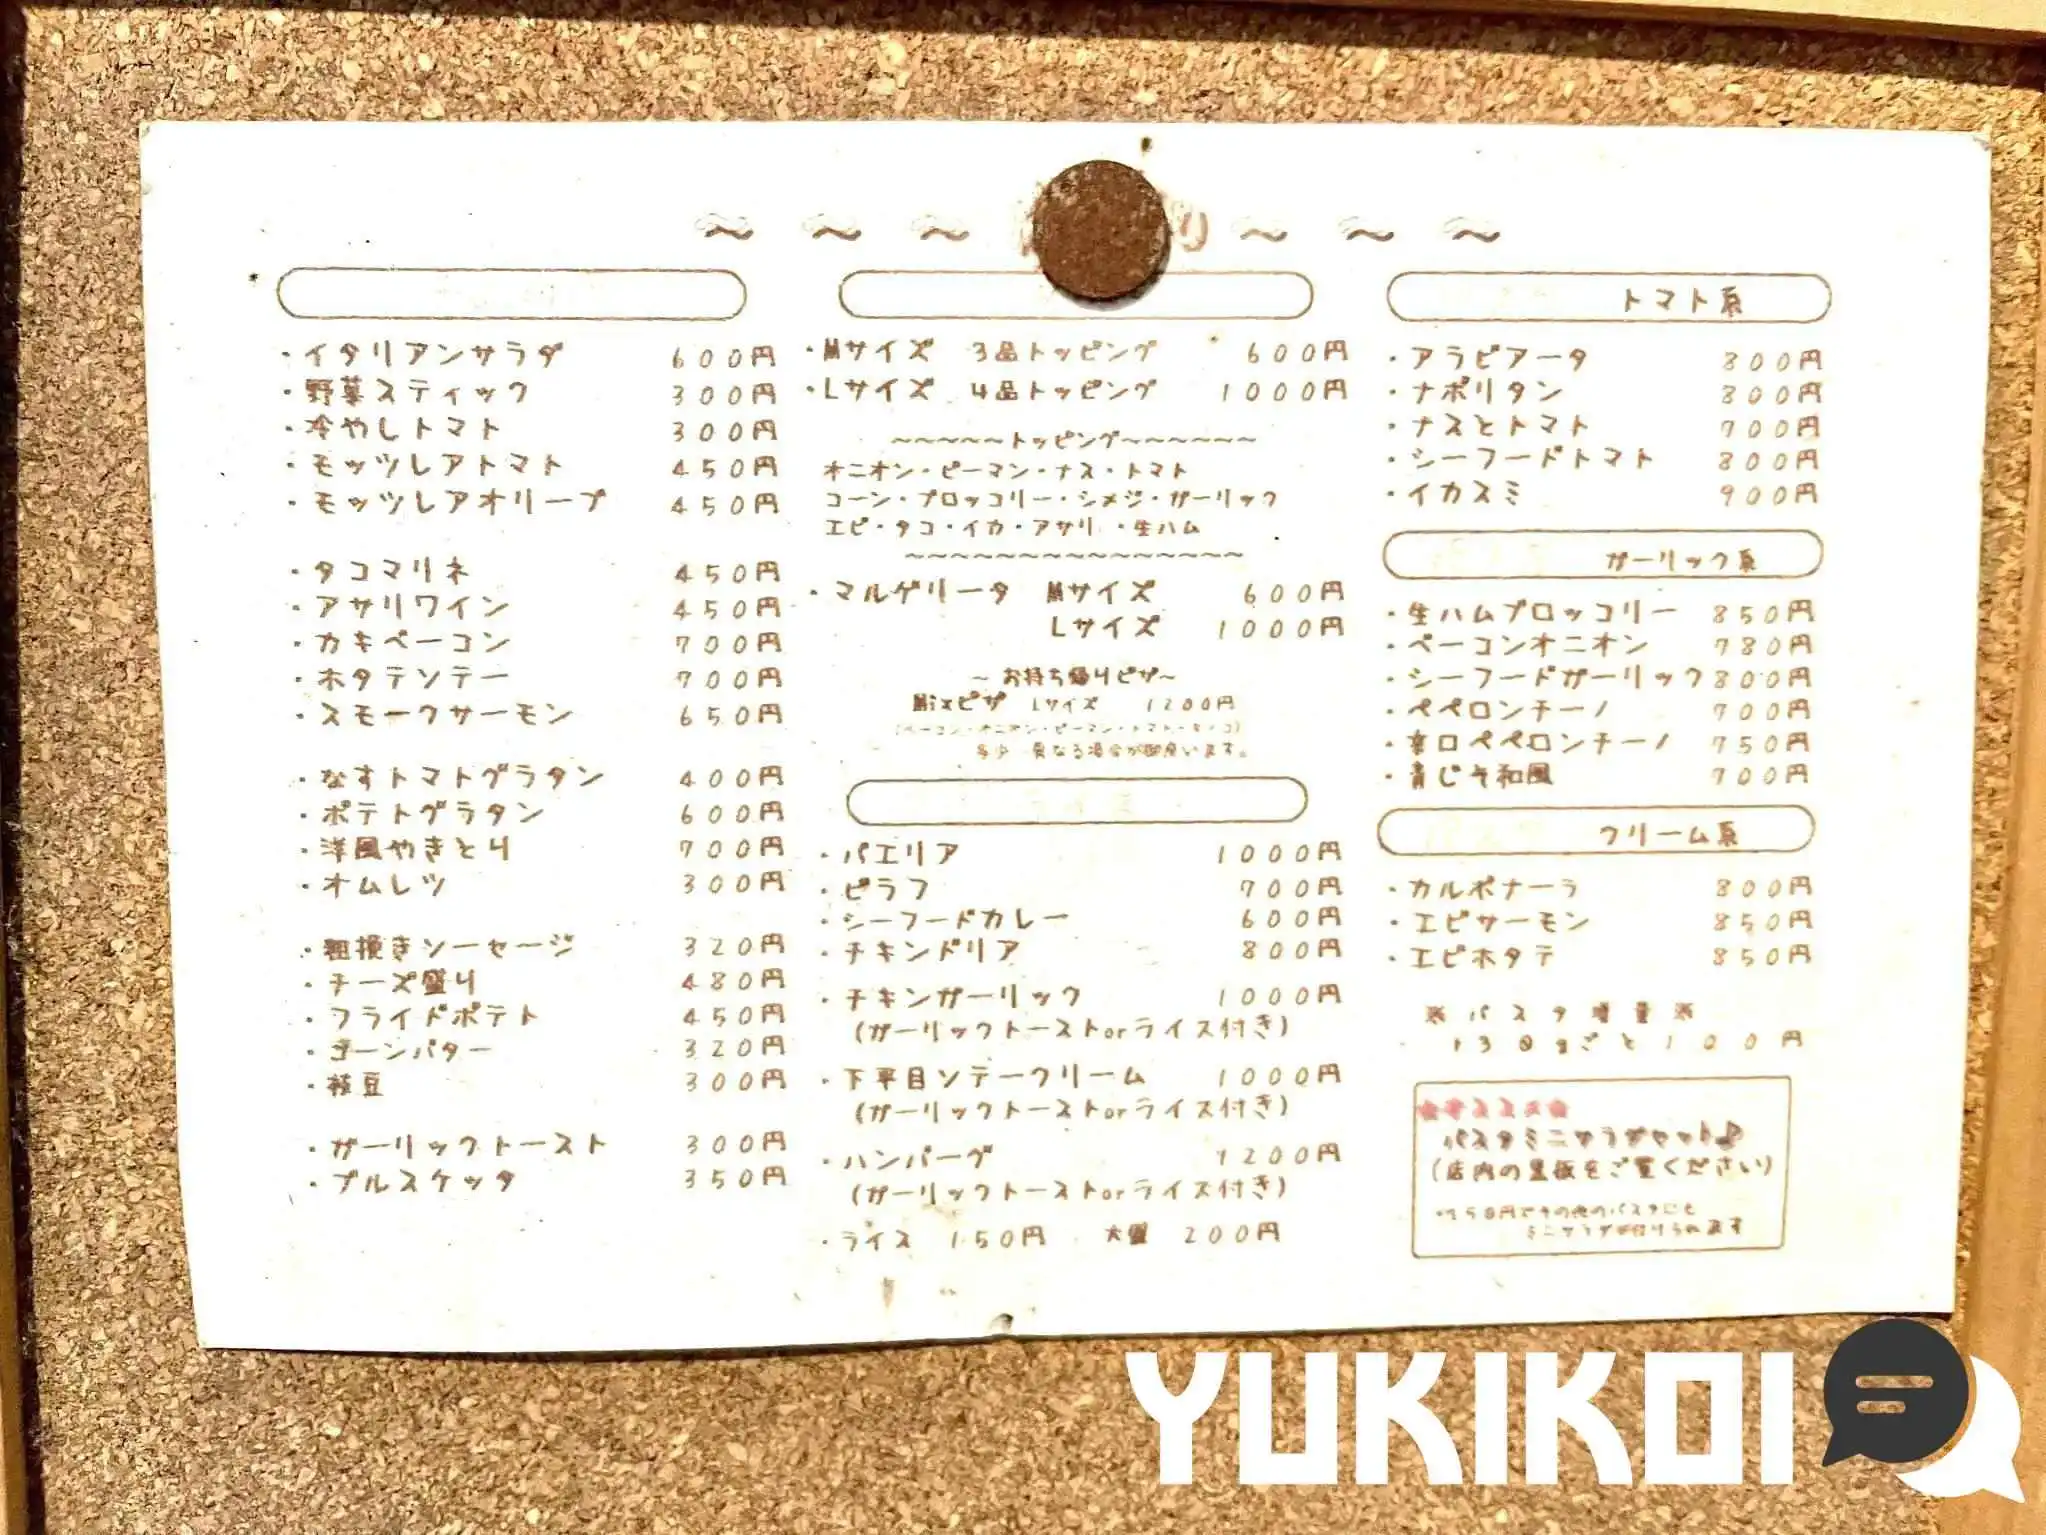 ・イタリアンサラダ 600円
・野菜スティック 300円
・冷やしトマト 300円
・モッツレアトマト 450円
・モッツレアオリーブ 450円
・タコマリネ 450円
・アサリワイン 450円
・カキベーコン 700円
・ホタテソテー 700円
・スモークサーモン 650円
・なすトマトグラタン 400円
・ポテトグラタン 600円
・洋風やきとり 700円
・オムレツ 300円
・粗挽きソーセージ 320円
・チーズ盛り 480円
・フライドポテト 450円
・コーンバター 320円
・枝豆 300円
・ガーリックトースト 300円
・ブルスケッタ 350円
・Mサイズ 3品トッピング 600円
・Lサイズ 4品トッピング 1000円
~~~~~トッピング~~~~~~
オニオン・ピーマン・ナス・トマト
コーン・ブロッコリー・シメジ・ガーリック
エビ・タコ・イカ・アサリ・生ハム
・マルゲリータ Mサイズ 600円
Lサイズ 1000円
~お持ち帰りピザ~
Mixピザ Lサイズ 1200円
(ベーコン・オニオン・ピーマン・トマト・キノコ)
多少 異なる場合が御座います。
・パエリア 1000円
・ピラフ 700円
・シーフードカレー 600円
・チキンドリア 800円
・チキンガーリック 1000円
(ガーリックトーストorライス付き)
・下平目ソテークリーム 1000円
(ガーリックトーストorライス付き)
・ハンバーグ 1200円
(ガーリックトーストorライス付き)
・ライス 150円 大盛 200円
トマト系
・アラビアータ 800円
・ナポリタン 800円
・ナスとトマト 700円
・シーフードトマト 800円
・イカスミ 900円
ガーリック系
・生ハムブロッコリー 850円
・ベーコンオニオン 780円
・シーフードガーリック 800円
・ペペロンチーノ 700円
・辛口ペペロンチーノ 750円
・青じそ和風 700円
クリーム系
・カルボナーラ 800円
・エビサーモン 850円
・エビホタテ 850円
※パスタ増量※
130gごと100円
★オススメ★
パスタミニサラダセット♪
(店内の黒板をご覧ください)
・150円でその他のパスタにも
ミニサラダが付けられます
YUKIKOI